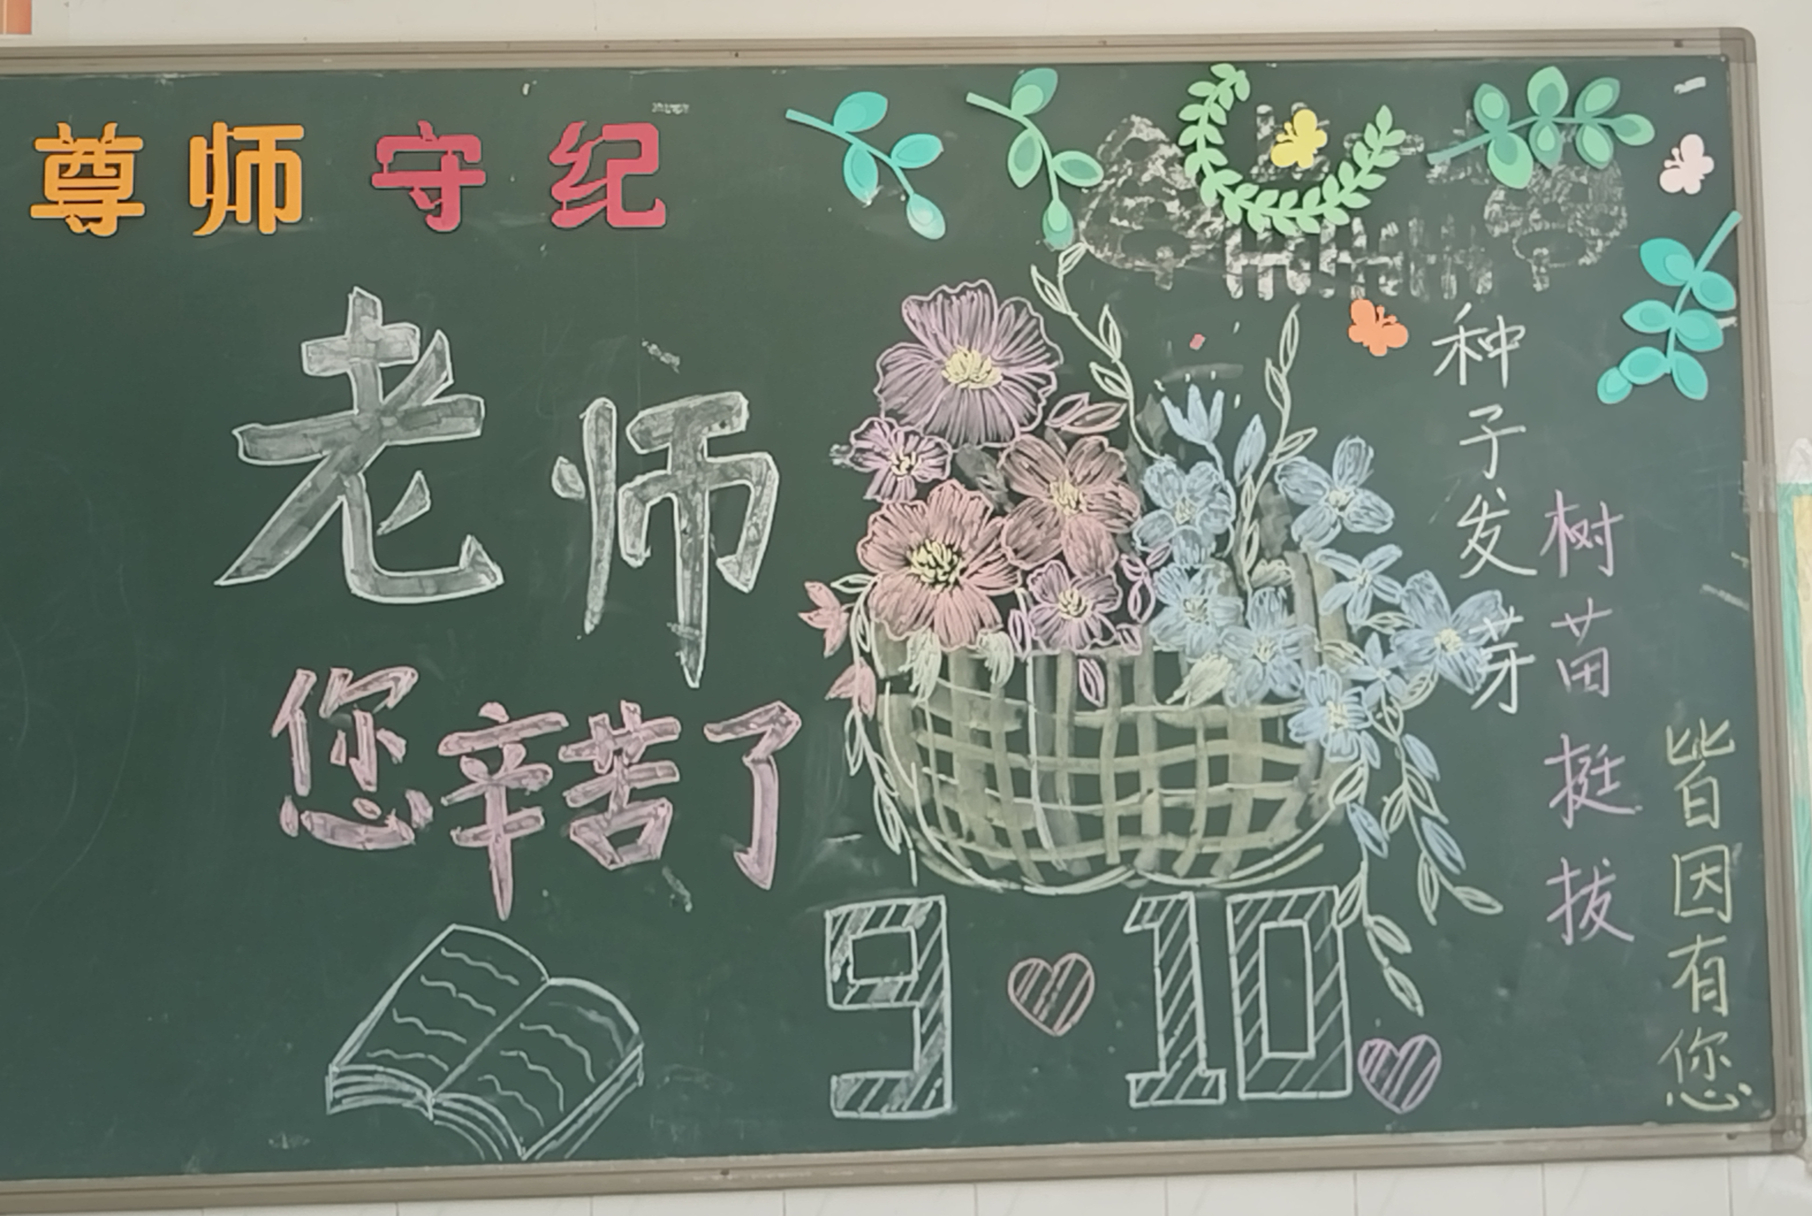 尊师守纪
老师
您辛苦了
9 10
种子发芽
树苗挺拔
皆因有您